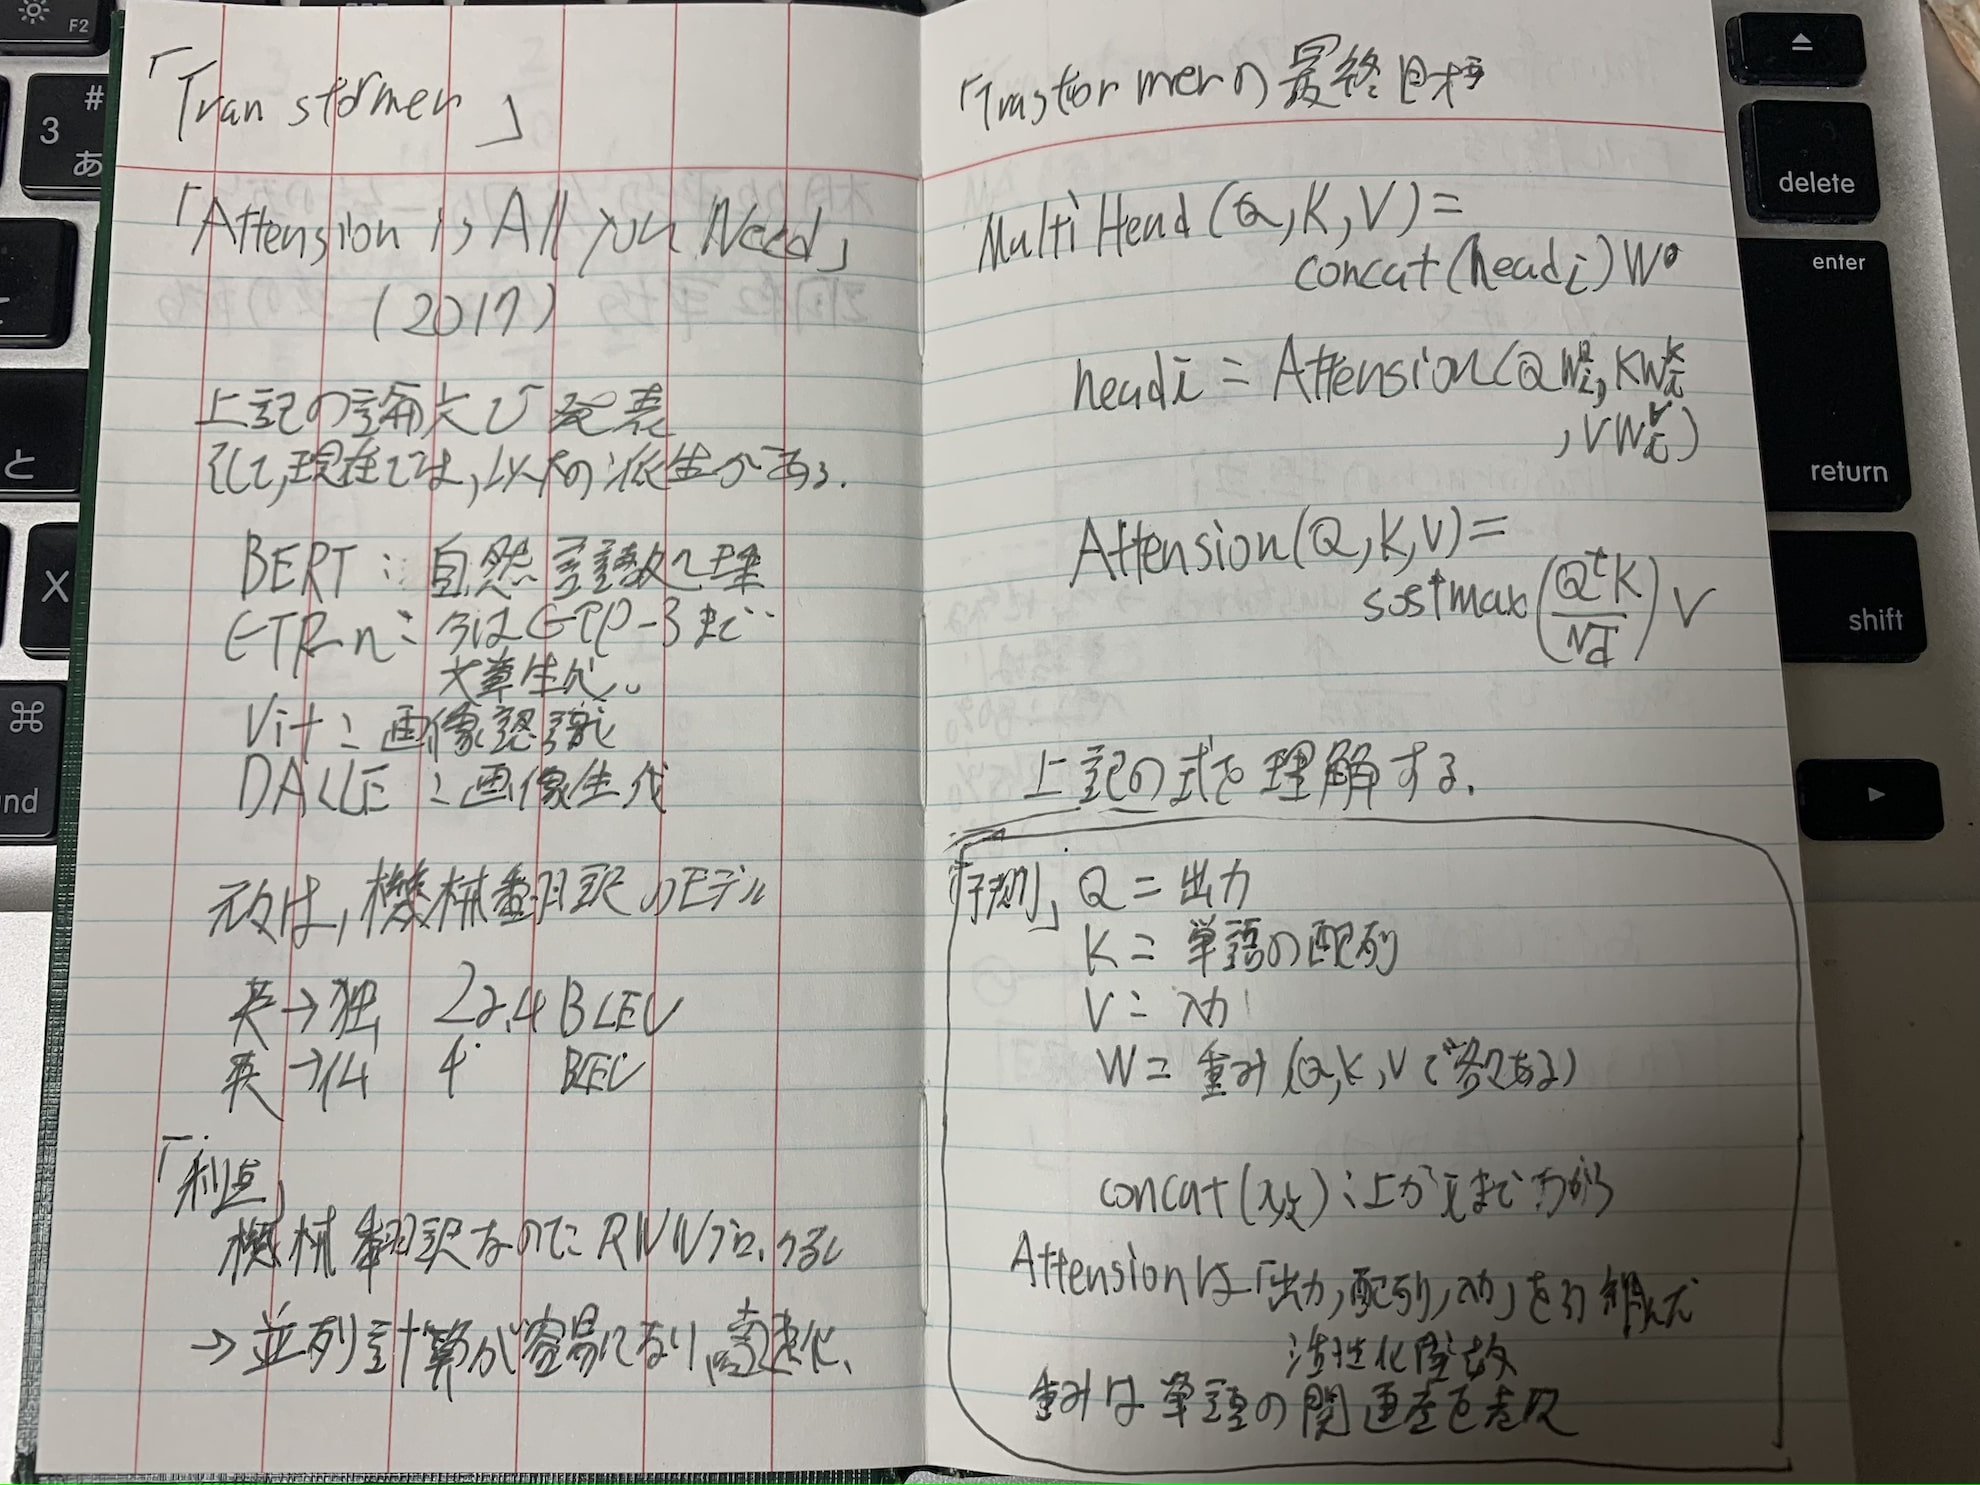 「Transformer」
「Attension is All you Need」
(2017)
上記の論文で発表
そして,現在では,以下の派生がある.
BERT:自然言語処理
GTP-n:今はGTP-3まで
文章生成。
Vit:画像認識
DALLE:画像生成
元々は,機械翻訳のモデル
英→独 22.4 BLEU
英→仏 4 BLEU
「利点」
機械翻訳なのにRNN
→並列計算が容易になり,高速化、
「Trasformerの最終目標
MultiHead(Q,K,V)=
concat(headi)W⁰
headi = Attension(QWᵢQ, KWᵢK
,VWᵢV)
Attension(Q,K,V)=
sostmax(QᵗK/√d)V
上記の式を理解する.
「予測」 Q=出力
K=単語の配列
V=入力
W=重み(Q,K,Vで各々ある)
concat :上が まで
Attensionは「出力,配列,入力」を 組んだ
活性化関数
重みは単語の関連度を表現
F2
#
3 あ
と
X
⌘
nd
delete
enter
return
shift